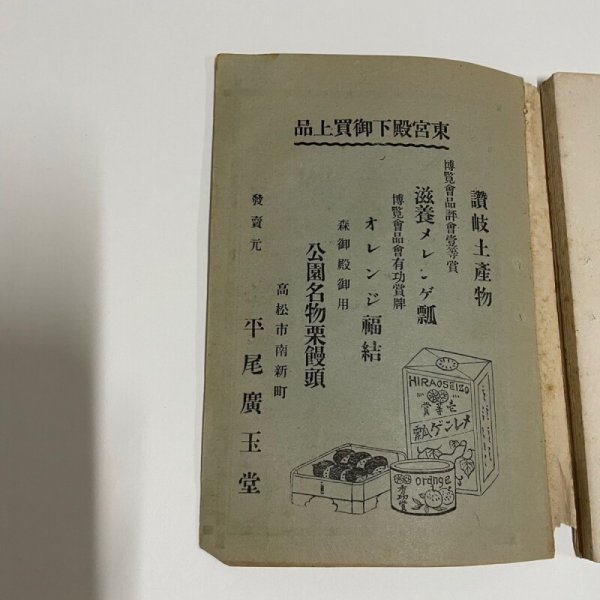 東宮殿下御買上品
讃岐土産物
博覧會品評會壹等賞
滋養メレンゲ瓢
博覧會品會有功賞牌
オレンジ福結
森御殿御用
公園名物栗饅頭
發賣元
高松市南新町
平尾廣玉堂
HIRAOSEIZO
壱等賞
メレンゲ瓢
orange
有功賞